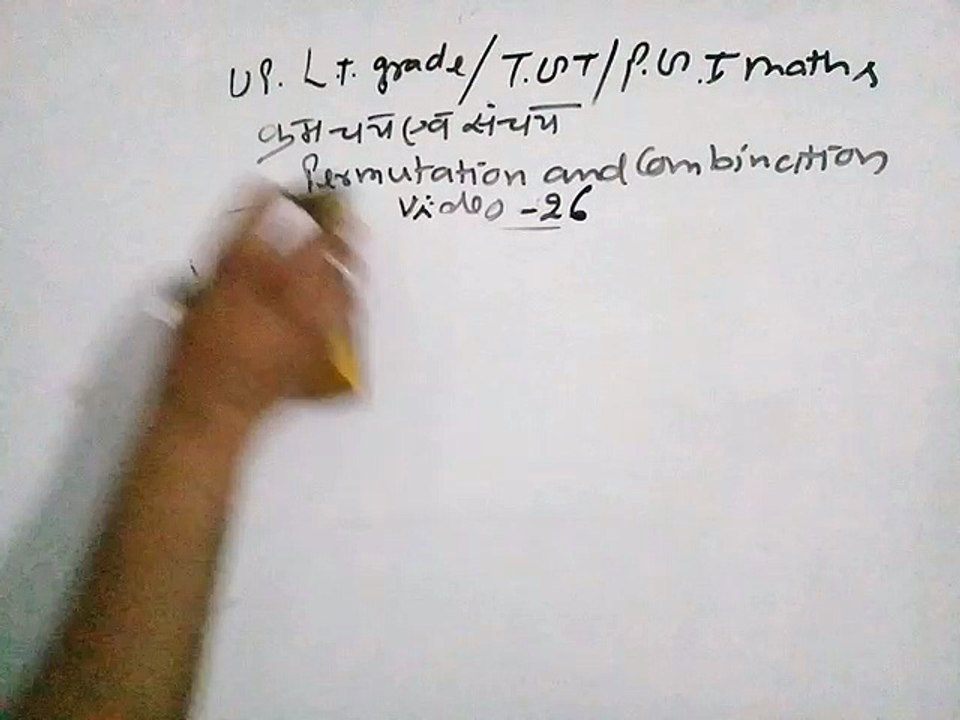 UP. L.T. grade/T.GT/P.G.T maths
क्रमचय एवं संचय
Permutation and Combination
Video -26